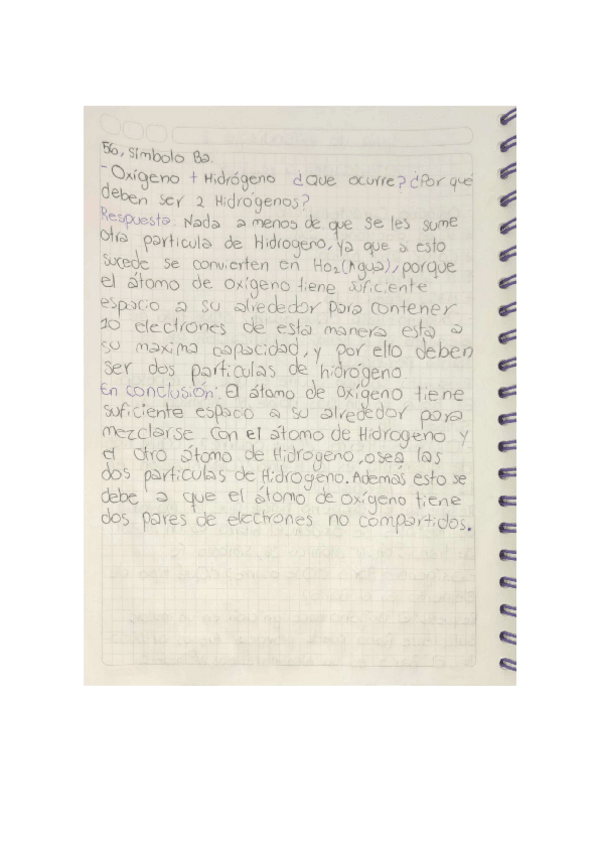 56, símbolo Ba.
- Oxígeno + Hidrógeno ¿Que ocurre? ¿Por qué
deben ser 2 Hidrógenos?
Respuesta Nada a menos de que se les sume
otra particula de Hidrogeno, ya que a esto
sucede se convierten en Ho₂ (Agua), porque
el átomo de oxígeno tiene suficiente
espacio a su alrededor para contener
10 electrones de esta manera esta a
su maxima capacidad, y por ello deben
ser dos particulas de hidrógeno
En conclusión: El átomo de Oxígeno tiene
suficiente espacio a su alrededor para
mezclarse con el átomo de Hidrogeno y
el otro átomo de Hidrogeno, osea las
dos particulas de Hidrogeno. Además esto se
debe a que el átomo de oxígeno tiene
dos pares de electrones no compartidos.